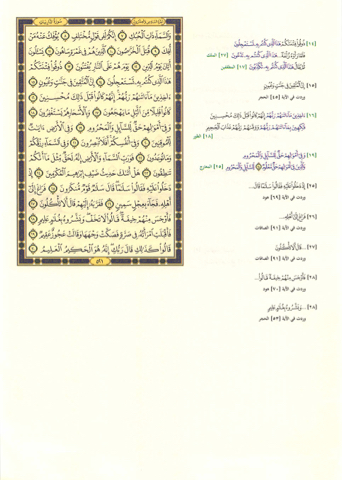 سورة الذاريات
وَالسَّمَاءِ ذَاتِ الْحُبُكِ ۝٧ إِنَّكُمْ لَفِي قَوْلٍ مُّخْتَلِفٍ ۝٨ يُؤْفَكُ عَنْهُ مَنْ
أُفِكَ ۝٩ قُتِلَ الْخَرَّاصُونَ ۝١٠ الَّذِينَ هُمْ فِي غَمْرَةٍ سَاهُونَ ۝١١ يَسْأَلُونَ
أَيَّانَ يَوْمُ الدِّينِ ۝١٢ يَوْمَ هُمْ عَلَى النَّارِ يُفْتَنُونَ ۝١٣ ذُوقُوا فِتْنَتَكُمْ
هَٰذَا الَّذِي كُنتُم بِهِ تَسْتَعْجِلُونَ ۝١٤ إِنَّ الْمُتَّقِينَ فِي جَنَّاتٍ وَعُيُونٍ ۝١٥
آخِذِينَ مَا آتَاهُمْ رَبُّهُمْ إِنَّهُمْ كَانُوا قَبْلَ ذَٰلِكَ مُحْسِنِينَ ۝١٦
كَانُوا قَلِيلًا مِّنَ اللَّيْلِ مَا يَهْجَعُونَ ۝١٧ وَبِالْأَسْحَارِ هُمْ يَسْتَغْفِرُونَ ۝١٨
وَفِي أَمْوَالِهِمْ حَقٌّ لِّلسَّائِلِ وَالْمَحْرُومِ ۝١٩ وَفِي الْأَرْضِ آيَاتٌ
لِّلْمُوقِنِينَ ۝٢٠ وَفِي أَنفُسِكُمْ أَفَلَا تُبْصِرُونَ ۝٢١ وَفِي السَّمَاءِ رِزْقُكُمْ
وَمَا تُوعَدُونَ ۝٢٢ فَوَرَبِّ السَّمَاءِ وَالْأَرْضِ إِنَّهُ لَحَقٌّ مِّثْلَ مَا أَنَّكُمْ
تَنطِقُونَ ۝٢٣ هَلْ أَتَاكَ حَدِيثُ ضَيْفِ إِبْرَاهِيمَ الْمُكْرَمِينَ ۝٢٤ إِذْ
دَخَلُوا عَلَيْهِ فَقَالُوا سَلَامًا قَالَ سَلَامٌ قَوْمٌ مُّنكَرُونَ ۝٢٥ فَرَاغَ إِلَىٰ
أَهْلِهِ فَجَاءَ بِعِجْلٍ سَمِينٍ ۝٢٦ فَقَرَّبَهُ إِلَيْهِمْ قَالَ أَلَا تَأْكُلُونَ ۝٢٧
فَأَوْجَسَ مِنْهُمْ خِيفَةً قَالُوا لَا تَخَفْ وَبَشَّرُوهُ بِغُلَامٍ عَلِيمٍ ۝٢٨
فَأَقْبَلَتِ امْرَأَتُهُ فِي صَرَّةٍ فَصَكَّتْ وَجْهَهَا وَقَالَتْ عَجُوزٌ عَقِيمٌ ۝٢٩
قَالُوا كَذَٰلِكِ قَالَ رَبُّكِ إِنَّهُ هُوَ الْحَكِيمُ الْعَلِيمُ ۝٣٠
٥٢١
(١٤) ذُوقُوا فِتْنَتَكُمْ هَٰذَا الَّذِي كُنتُم بِهِ تَسْتَعْجِلُونَ
... هَٰذَا الَّذِي كُنتُم بِهِ تَدَّعُونَ [٢٧] الملك
ثُمَّ يُقَالُ هَٰذَا الَّذِي كُنتُم بِهِ تُكَذِّبُونَ [١٧] المطففين
(١٥) إِنَّ الْمُتَّقِينَ فِي جَنَّاتٍ وَعُيُونٍ
وردت في الآية [٤٥] الحجر
(١٦) آخِذِينَ مَا آتَاهُمْ رَبُّهُمْ إِنَّهُمْ كَانُوا قَبْلَ ذَٰلِكَ مُحْسِنِينَ
فَاكِهِينَ بِمَا آتَاهُمْ رَبُّهُمْ وَوَقَاهُمْ رَبُّهُمْ عَذَابَ الْجَحِيمِ
[١٨] الطور
(١٩) وَفِي أَمْوَالِهِمْ حَقٌّ لِّلسَّائِلِ وَالْمَحْرُومِ
وَالَّذِينَ فِي أَمْوَالِهِمْ حَقٌّ مَّعْلُومٌ لِّلسَّائِلِ وَالْمَحْرُومِ [٢٥] المعارج
(٢٥) إِذْ دَخَلُوا عَلَيْهِ فَقَالُوا سَلَامًا قَالَ...
وردت في الآية [٦٩] هود
(٢٦) فَرَاغَ إِلَىٰ أَهْلِهِ...
وردت في الآية [٩١] الصافات
(٢٧) ...قَالَ أَلَا تَأْكُلُونَ
وردت في الآية [٩١] الصافات
(٢٨) فَأَوْجَسَ مِنْهُمْ خِيفَةً قَالُوا...
وردت في الآية [٧٠] هود
(٢٨) ...وَبَشَّرُوهُ بِغُلَامٍ عَلِيمٍ
وردت في الآية [٥٣] الحجر